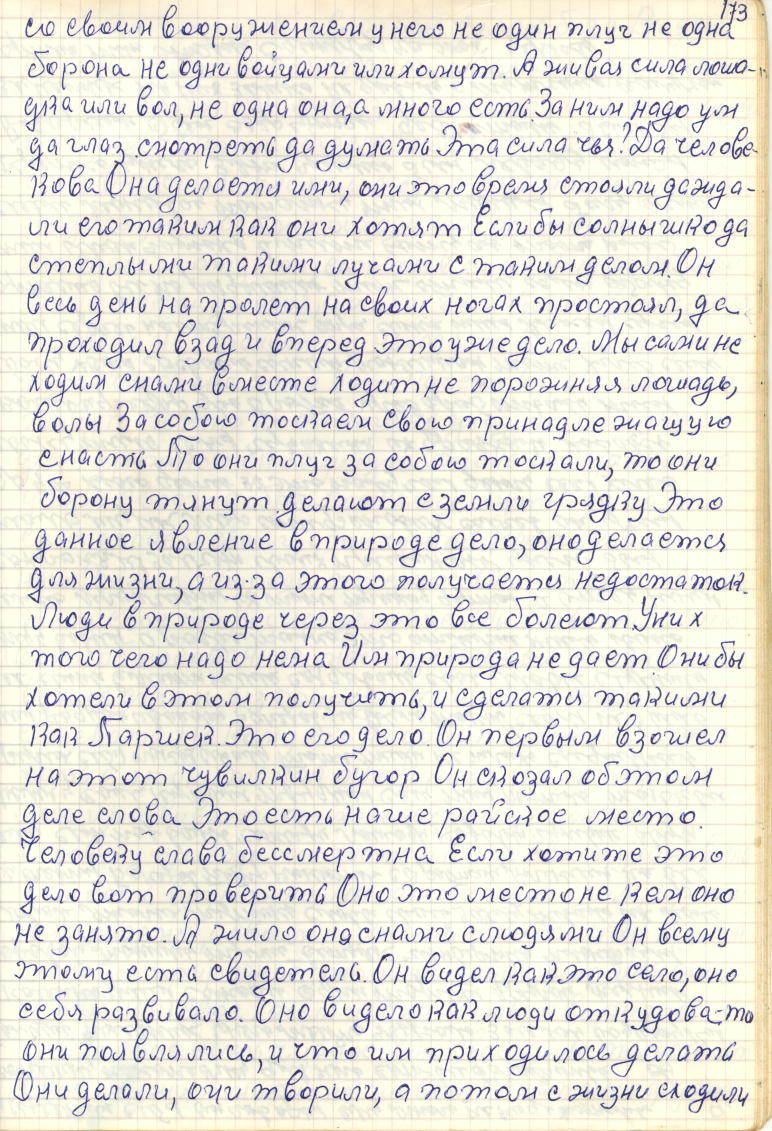 173
со своим вооружением у него не один плуг не одна
борона не одни войцами или хомут. А живая сила лоша-
дка или вол, не одна она, а много есть За ним надо ум
да глаз смотреть да думать Эта сила чья? Да челове-
кова Она делается ими, они это время стояли да жда-
ли его таким как они хотят Если бы солнышко да
с теплыми такими лучами с таким делом. Он
весь день на пролет на своих ногах простоял, да
проходил взад и вперед это уже дело. Мы сами не
ходим снами вместе ходит не порожняя лошадь,
волы За собою тоскаем свою принадлежащую
снасть То они плуг за собою тоскали, то они
борону тянут делают с земли грядку Это
данное явление в природе дело, оно делается
для жизни, а из-за этого получается недостаток.
Люди в природе через это все болеют У них
того чего надо нема Им природа не дает Они бы
хотели в этом получить, и сделатя такими
как Паршек. Это его дело. Он первым взошел
на этот чувилкин бугор Он сказал об этом
деле слова Это есть наше райское место.
Человеку слава бессмертна Если хотите это
дело вот проверить Оно это место не кем оно
не занято. А жило она снами с людями Он всему
этому есть свидетель. Он видел как это село, оно
себя развивало. Оно видело как люди откудова-то
они появлялись, и что им приходилось делать
Они делали, они творили, а потом с жизни сходили